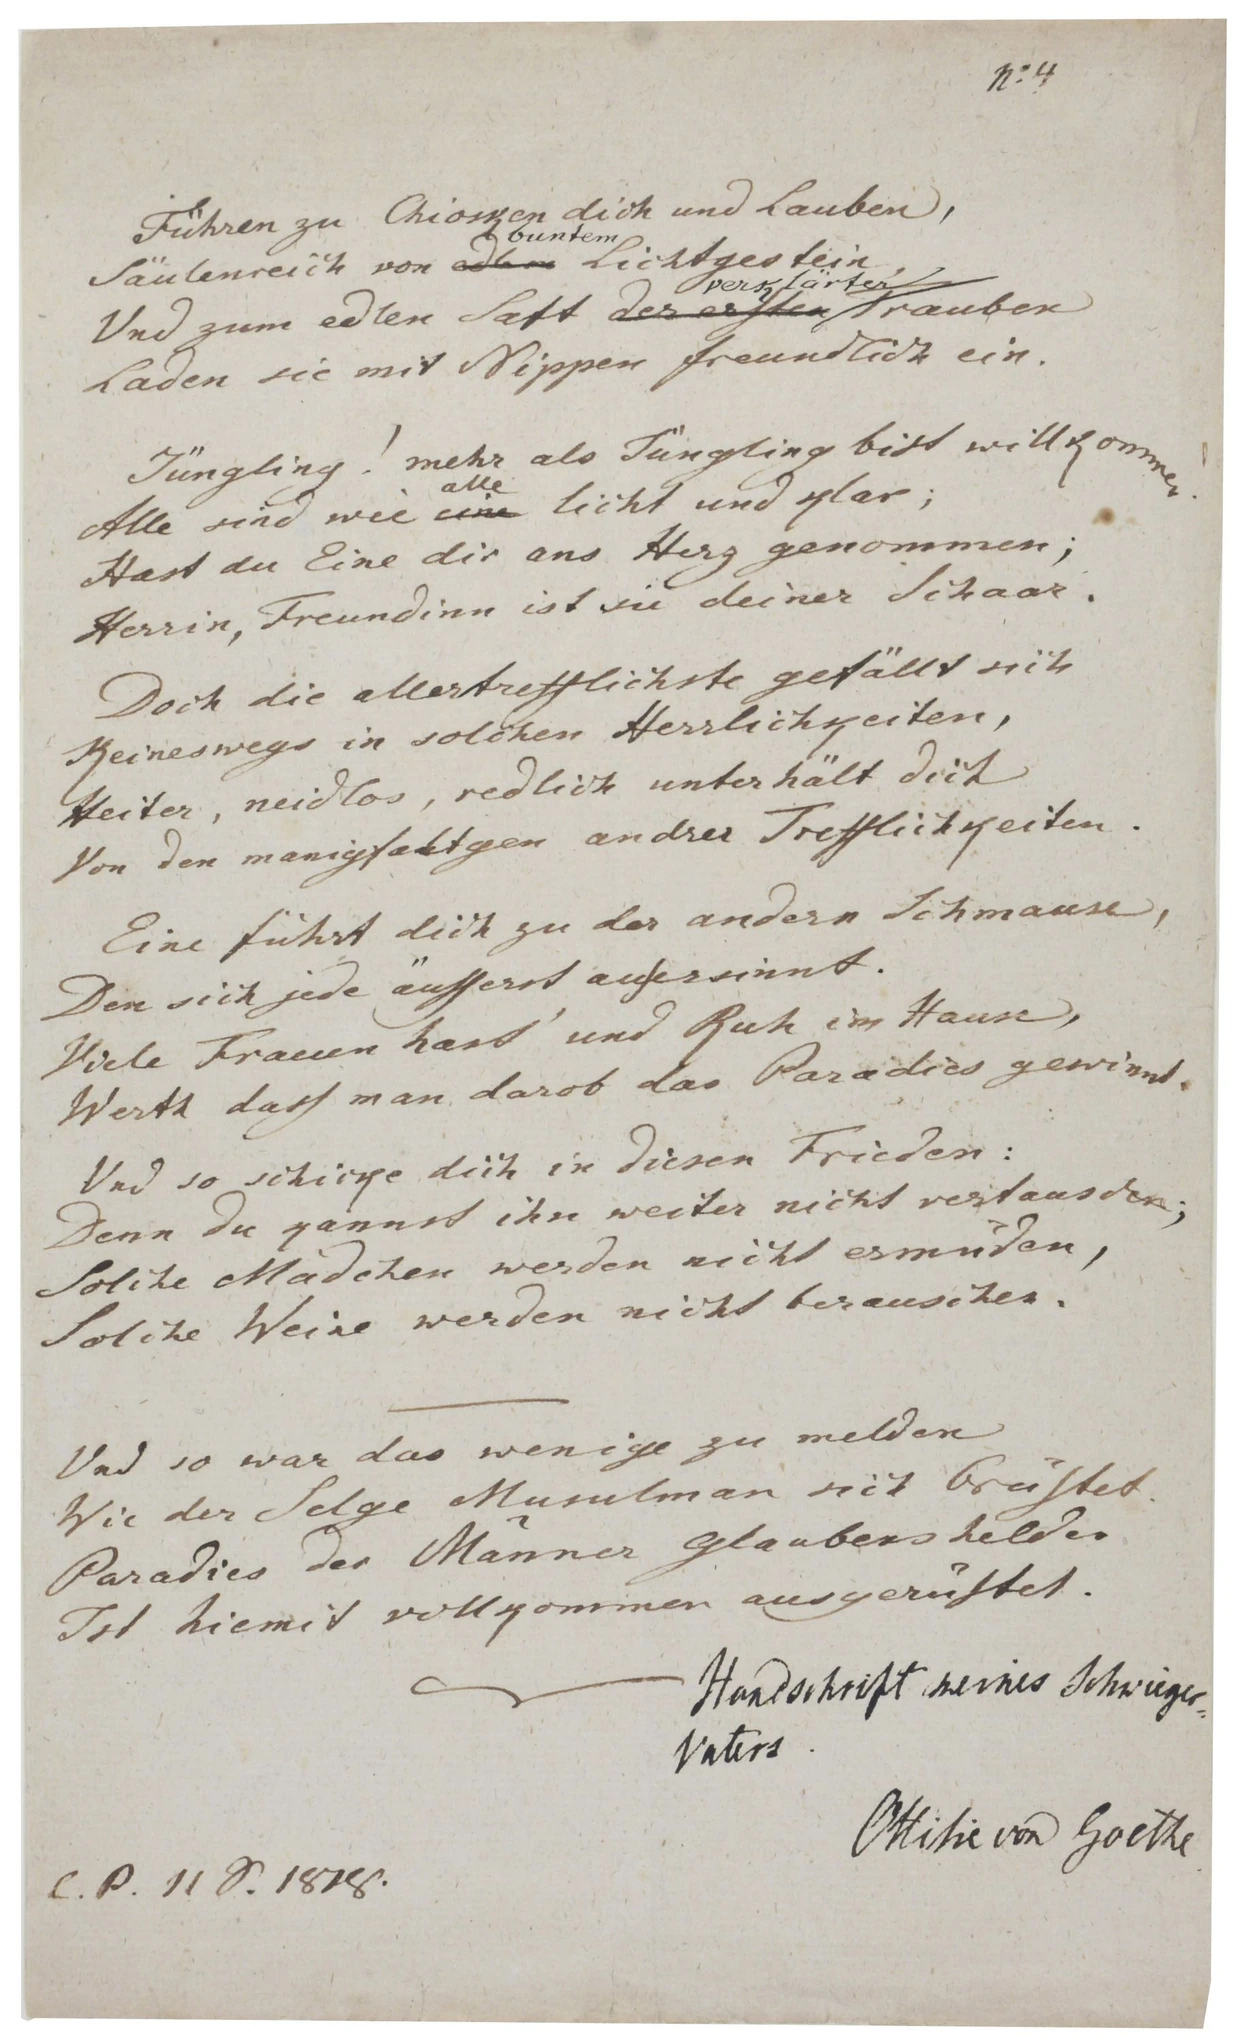 No: 4
Führen zu Chiosken dich und Lauben,
buntem
Säulenreich von edlem Lichtgestein,
verklärter
Und zum edlen Saft der ersten Trauben
Laden sie mit Nippen freundlich ein.
Jüngling! mehr als Jüngling bist willkommen.
alle
Alle sind wie eine licht und klar;
Hast du Eine dir ans Herz genommen;
Herrin, Freundinn ist sie deiner Schaar.
Doch die allertrefflichste gefällt sich
Keineswegs in solchen Herrlichkeiten,
Heiter, neidlos, redlich unterhält dich
Von den manigfaltgen andrer Trefflichkeiten.
Eine führt dich zu der andern Schmause,
Den sich jede äusserst ausersinnt.
Viele Frauen hast und Ruh im Hause,
Werth dass man darob das Paradies gewinnt.
Und so schicke dich in diesen Frieden:
Denn du kannst ihn weiter nicht vertauschen;
Solche Mädchen werden nicht ermüden,
Solche Weine werden nicht berauschen.
Und so war das wenige zu melden
Wie der Selge Musulman sich brüstet.
Paradies der Männer Glaubenshelden
Ist hiemit vollkommen ausgerüstet.
Handschrift meines Schwieger-
Vaters.
Ottilie von Goethe
C. P. 11 8. 1818.